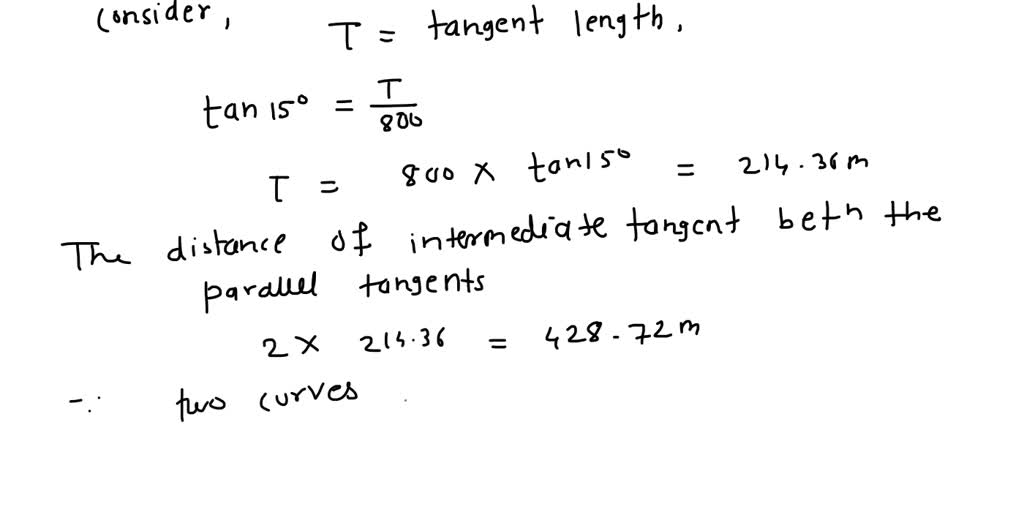 consider, T = tangent length,
tan 15° = T/800
T = 800 × tan15° = 214.36m
The distance of intermediate tangent betn the
parallel tangents
2 × 214.36 = 428.72m
∵ two curves